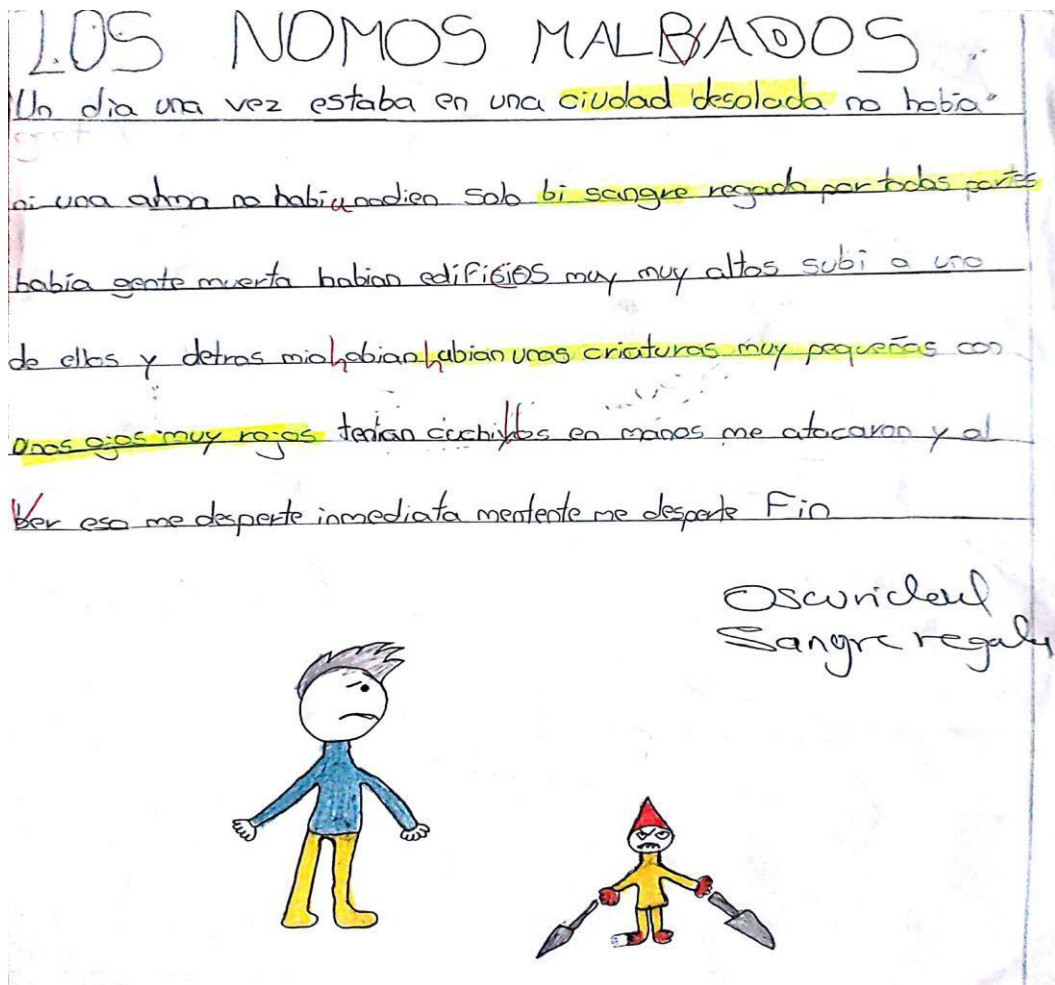 LOS NOMOS MALBADOS
Un dia una vez estaba en una ciudad desolada no habia
ni una alma no habia nadien solo bi sangre regada por todas partes
había gente muerta habian edificios muy muy altos subi a uno
de ellos y detras mio habian habian unas criaturas muy pequeñas con
unos ojos muy rojos tenian cuchillos en manos me atacaron y al
ver eso me desperte inmediata mentente me desperte Fin
Oscuridad
Sangre regada